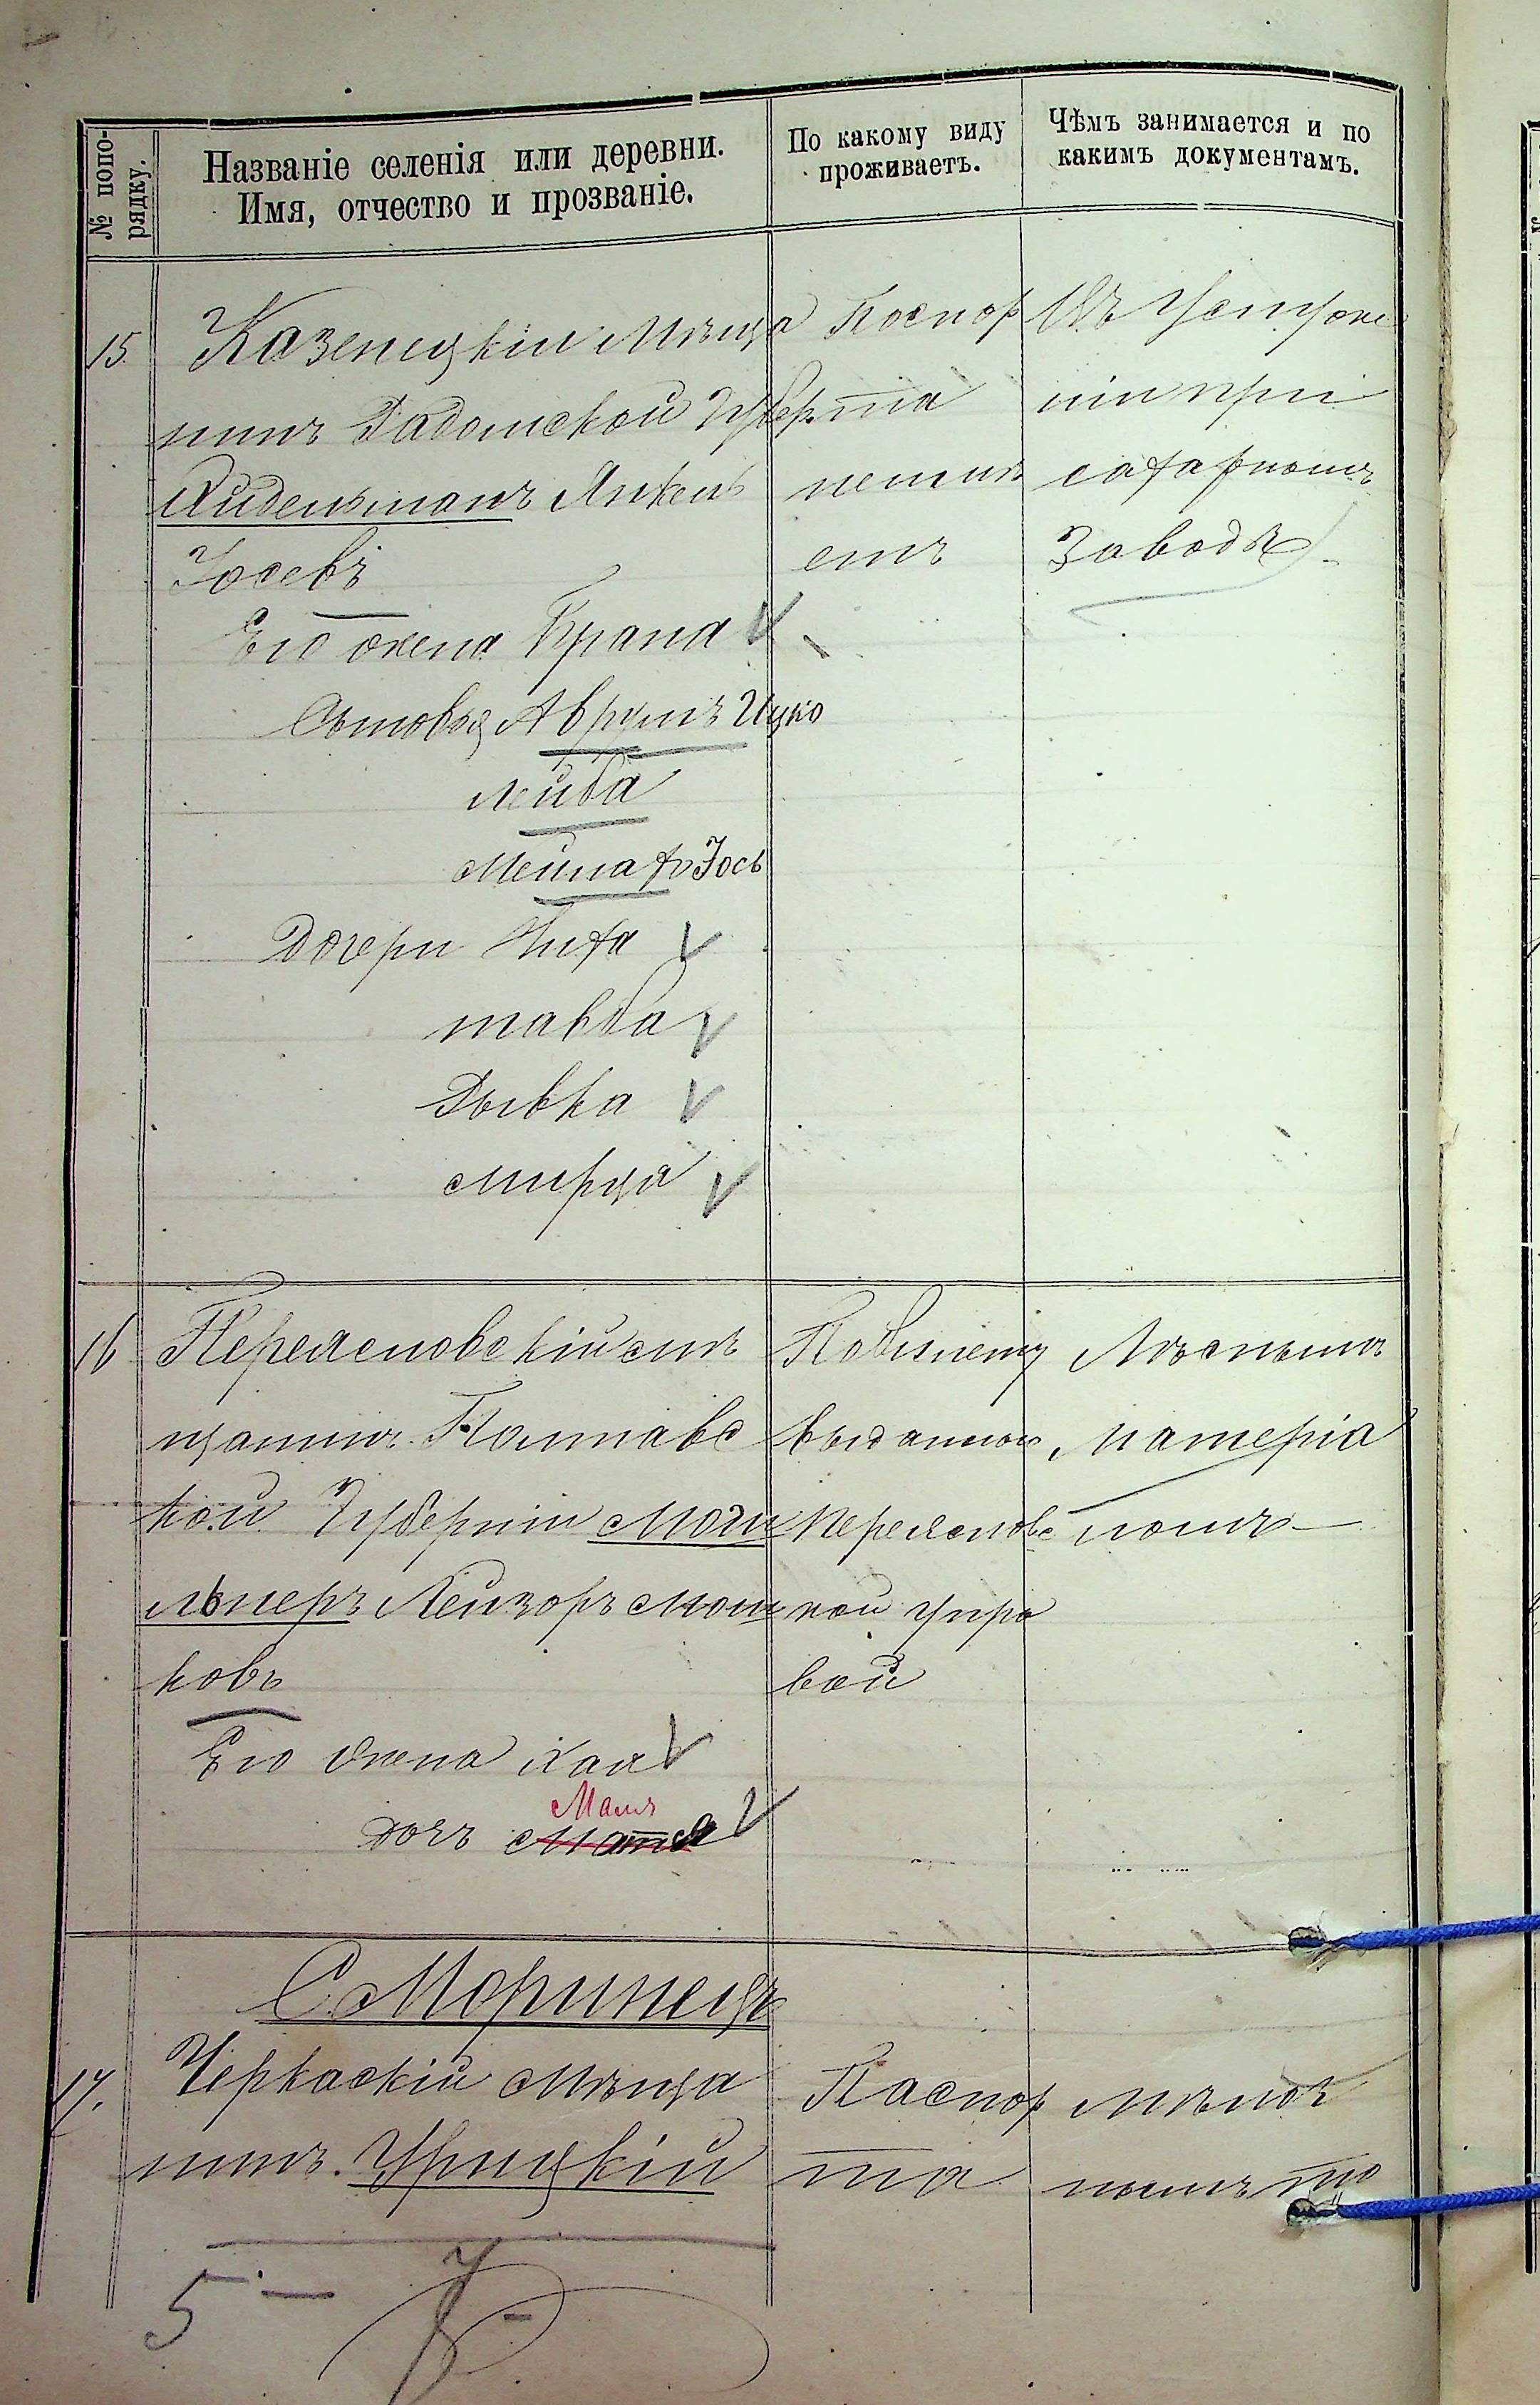 № попо-
рядку.
Названіе селенія или деревни.
Имя, отчество и прозваніе.
По какому виду
проживаетъ.
Чѣмъ занимается и по
какимъ документамъ.
15 Казенецкій Мѣща
нинъ Радомской Губер.
Айдельманъ Янкель
Іосевъ
Его жена Брана
Сыновья Аврумъ Ицко
Лейба
Мейлахъ Іось
Дочери Хита
Тавба
Рывка
Мирца
Паспор
та
Въ Услуже
ніи при
сахарномъ
Заводѣ
16 Переясновскій мѣ
щанинъ Полтавс
кой Губерніи Моги
льнеръ Лейзоръ Мош
ковъ
Его жена Хая
дочъ Матля
Маля
По билету
выданном
Переяслове
кой упра
вой
Лѣснымъ
матеріа
ломъ
С. Моринецъ
17. Черкаскій Мѣща
нинъ. Урицкій
Паспор
та
мѣлоч
нымъ то
5 —